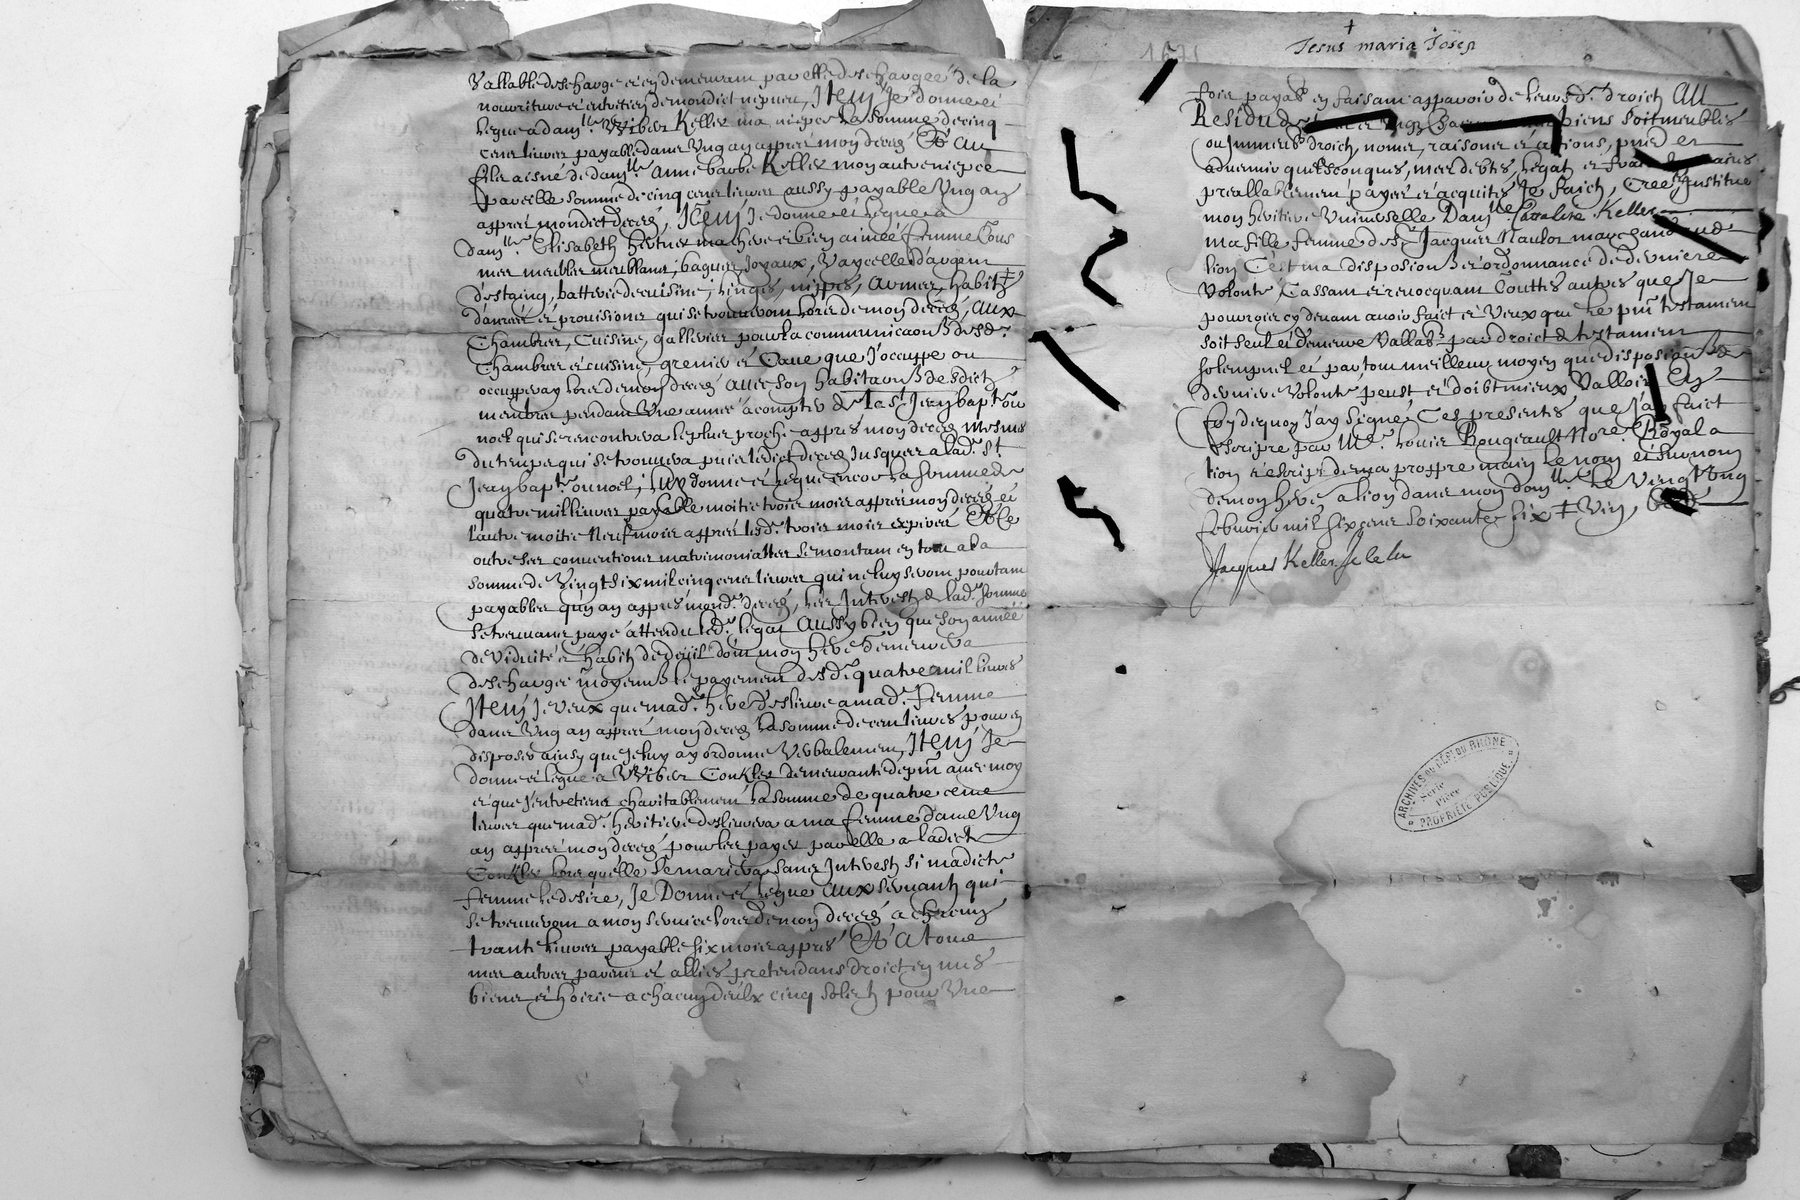 Vallable descharge et en demeurant par elle deschargée de la
nourriture et entretien de mondict nepveu, Item Je donne et
legue a dam.lle Wiber Keller ma niepce la somme de cinq
cens livres payable dans Ung an appres mon deces Et au
filz aisné de dam.lle Anne barbe Keller mon autre niepce
pareille somme de cinq cens livres aussy payable Ung an
appres mondict deces, Item Je donne et legue a
dam.lle Elisabeth ma chere et bien aimée femme Tous
mes meubles meublans, bagues, Joyaux, Vaycelle d'argent
d'estaing, batterie de cuisine, linges, nippes, armes, habitz
danrées et provisions qui se trouveront lors de mon deces, aux
Chambres, Cuisine, galleries pour la communicaon desd.
Chambres et cuisine, grenier et Cave que J'occuppe ou
occupperay lors de mon deces avec son habitaon desdictz
membres pendant Une année a compter de la St Jean bapte ou
noel qui se rencontrera le plus proche appres mon deces mesmes
du temps qui se trouvera puis ledict deces Jusques a lad. St
Jean bapt. ou noel, luy donne et legue encor la somme de
quatre mil livres payable moitié trois mois appres mon deces et
l'autre moitié Neuf mois appres lesd. trois mois expires Et ce
outre ses conventions matrimonialles se montant en tout a la
somme de Vingt six mil cinq cens livres qui ne luy seront pourtant
payables qu'un an appres mond. deces, les Interestz de lad. somme
se trouvans payé attendu led. legat aussy bien que son année
de Viduité et habitz de deuil dont mon here demeurera
deschargée moyennt le payement desd. quatre mil livres
Item Je veux que mad. here deslivre a mad. femme
dans Ung an appres mon deces la somme de cent livres pour en
disposer ainsy que Je luy ay ordonné Verbalement, Item Je
donne et legue a Wiber Conkler demeurante de pnt avec moy
et que J'entretiens charitablement la somme de quatre cens
livres que mad. heritiere deslivrera a ma femme dans Ung
an appres mon deces pour les payer par elle a ladicte
Conkler lors qu'elle se mariera sans Interestz si madicte
femme le desire, Je Donne et legue aux servantz qui
se trouveront a mon service lors de mon deces a chacung
trante livres payable six mois appres Et a tous
mes autres parens et alliés pretendans droict en mes
biens et hoirie a chacung d'eulx cinq solz tz pour Une
Jesus maria Joseph
fois payabl en faisant apparoir de leursd. droictz Au
Residu de biens soit meubles
ou Immeubles droictz, noms, raisons et actions, pnts et
advenir quelsconques, mes debtes, legatz et frais
preallablement payés et acquités Je faictz, Crée et Institue
mon heritiere Universelle Dam.lle Keller
ma fille femme de Sr Jacques Maulor marchand
lion C'est ma disposion et ordonnance de derniere
Volonté, Cassant et revocquant touttes autres que Je
pourrois cy devant avoir faict et Veux que le pnt testament
soit seul et demeure Vallable par droict de testament
solempnel et par tout meilleur moyen que disposion de
derniere Volonté peust et doibt mieux Valloir En
foy de quoy J'ay signé Ces presentes que J'ay faict
escripre par Me Louis Rougeault Nore Royal a
lion et escript de ma proppre main le nom et surnom
de mon here a lion dans mon dom.lle le Vingt Ung
febvrier mil six cens soixante six
Jacques Keller
ARCHIVES DU DÉPt DU RHÔNE
Série
Pièce
PROPRIÉTÉ PUBLIQUE